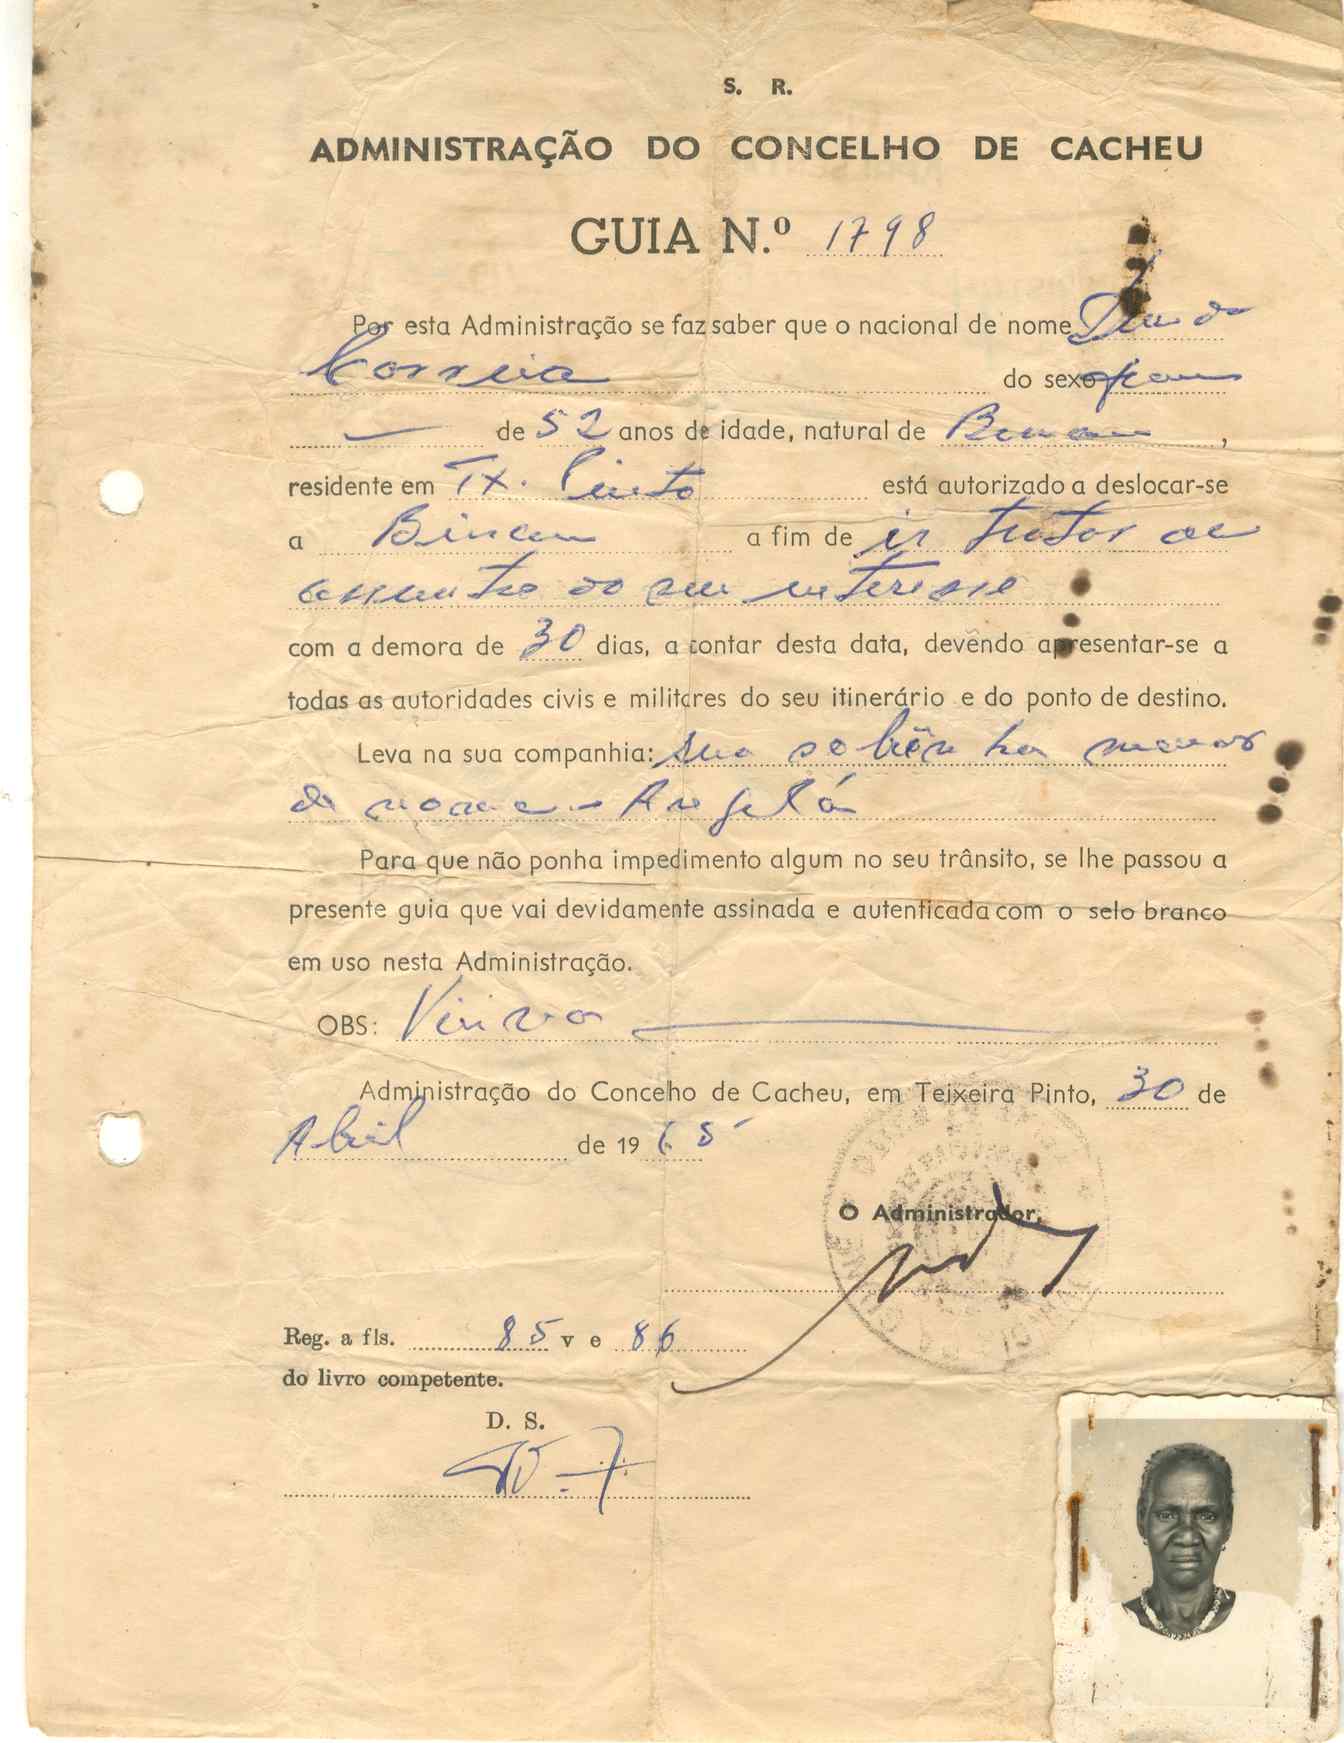 S. R.
ADMINISTRAÇÃO DO CONCELHO DE CACHEU
GUIA N.º 1798
Por esta Administração se faz saber que o nacional de nome
Correia do sexo fem
— de 52 anos de idade, natural de
residente em Tx. Pinto está autorizado a deslocar-se
a Bissau a fim de ir tratar de
assuntos do seu interesse
com a demora de 30 dias, a contar desta data, devendo apresentar-se a
todas as autoridades civis e militares do seu itinerário e do ponto de destino.
Leva na sua companhia: sua sobrinha menor
de nome - Angelá
Para que não ponha impedimento algum no seu trânsito, se lhe passou a
presente guia que vai devidamente assinada e autenticada com o selo branco
em uso nesta Administração.
OBS: Viúva
Administração do Concelho de Cacheu, em Teixeira Pinto, 30 de
Abril de 1965
O Administrador,
Reg. a fls. 85 v e 86
do livro competente.
D. S.